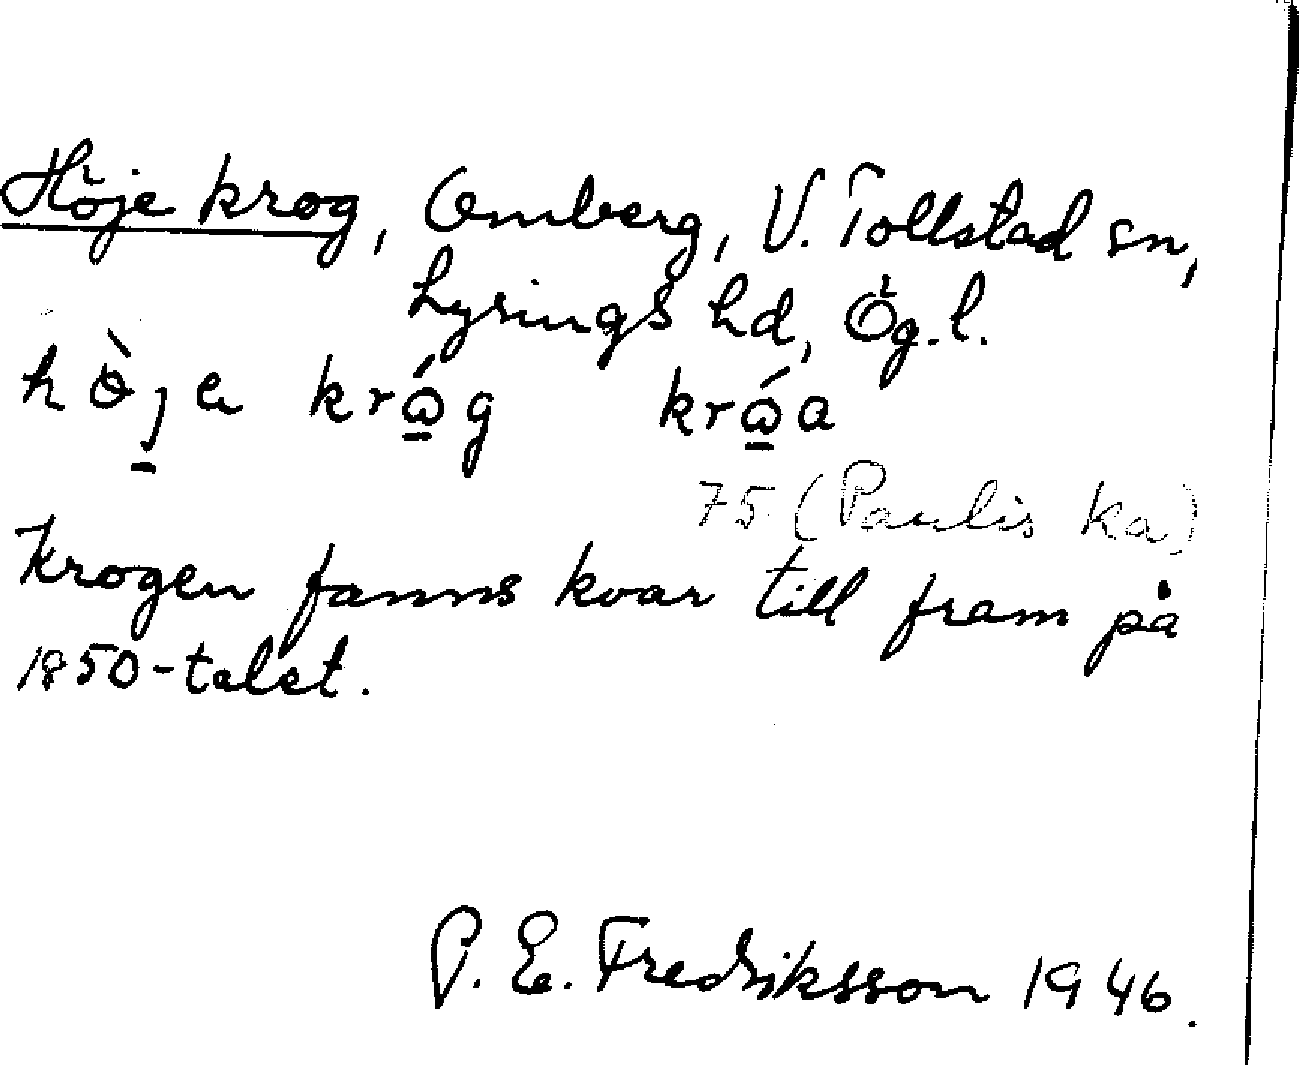 Höje krog, Omberg, V. Tollstad sn,
Lysings hd, Ög. l.
krogen fanns kvar till fram på
1850-talet.
75 (Paulis ka)
P. E. Fredriksson 1946.